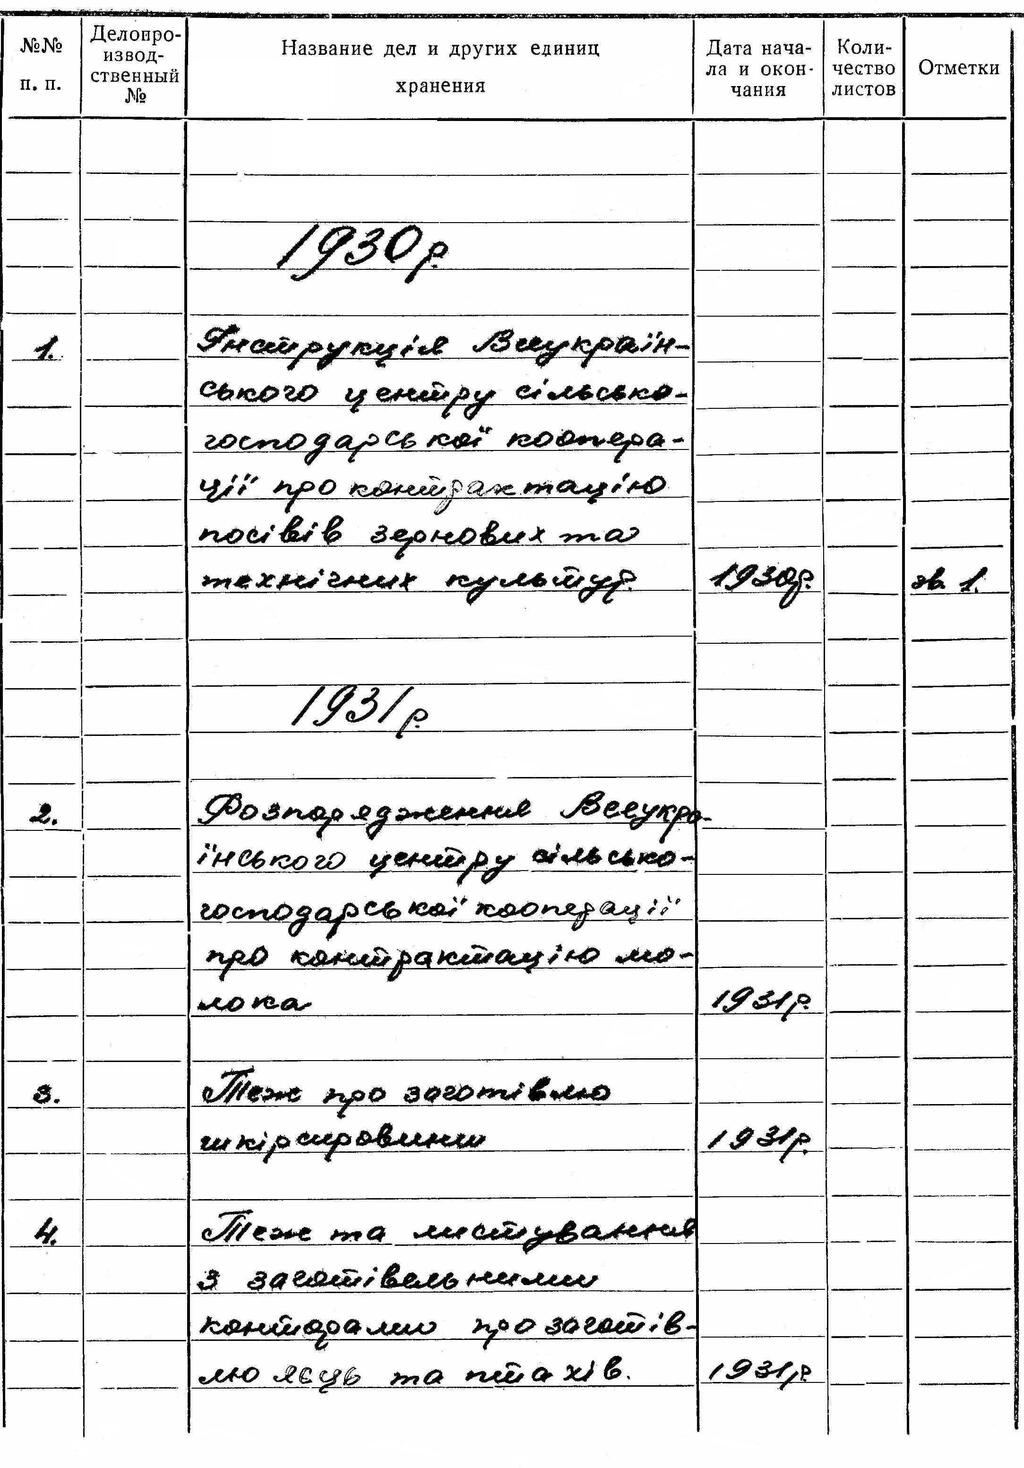 №№ п. п.
Делопро-
извод-
ственный
№
Название дел и других единиц
хранения
Дата нача-
ла и окон-
чания
Коли-
чество
листов
Отметки
1930р.
1. Інструкція Всеукраїн-
ського центру сільсько-
господарської коопера-
ції про контрактацію
посівів зернових та
технічних культур. 1930р. зв. 1.
1931р.
2. Розпорядження Всеукра-
їнського центру сільсько-
господарської кооперації
про контрактацію мо-
лока 1931р.
3. Теж про заготівлю
шкірсировини 1931р.
4. Теж та листування
з заготівельними
конторами про заготів-
лю яєць та птахів. 1931р.